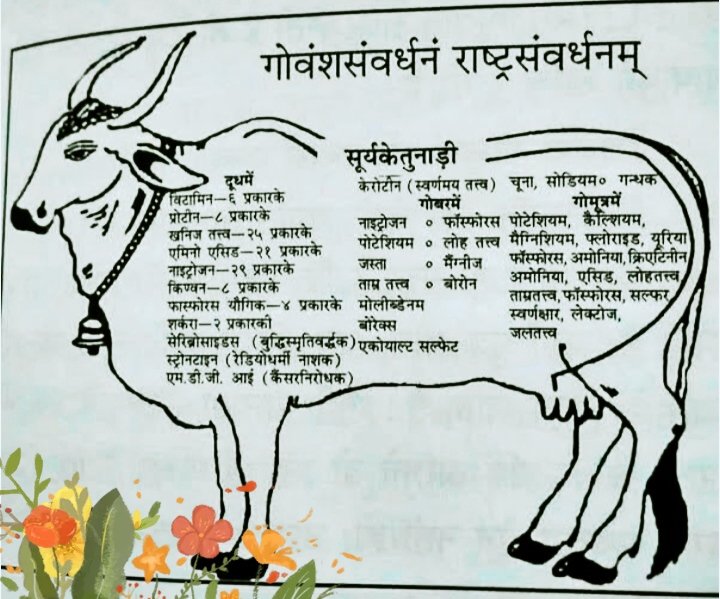 गोवंशसंवर्धनं राष्ट्रसंवर्धनम्
सूर्यकेतुनाड़ी
केरोटीन (स्वर्णमय तत्त्व) चूना, सोडियम॰ गन्धक
दूधमें
विटामिन—६ प्रकारके
प्रोटीन—८ प्रकारके
खनिज तत्त्व—२५ प्रकारके
एमिनो एसिड—२१ प्रकारके
नाइट्रोजन—२९ प्रकारके
किण्वन—८ प्रकारके
फास्फोरस यौगिक—४ प्रकारके
शर्करा—२ प्रकारकी
सेरिब्रोसाइडस (बुद्धिस्मृतिवर्द्धक)
स्ट्रोनटाइन (रेडियोधर्मी नाशक)
एम.डी.जी. आई (कैंसरनिरोधक)
गोबरमें
नाइट्रोजन ० फॉस्फोरस
पोटेशियम ० लोह तत्त्व
जस्ता ० मैंग्नीज
ताम्र तत्त्व ० बोरोन
मोलीब्डेनम
बोरेक्स
एकोयाल्ट सल्फेट
गोमूत्रमें
पोटेशियम, कैल्शियम,
मैग्निशियम, फ्लोराइड, यूरिया
फॉस्फोरस, अमोनिया, क्रिएटिनीन
अमोनिया, एसिड, लोहतत्त्व
ताम्रतत्त्व, फॉस्फोरस, सल्फर,
स्वर्णक्षार, लेक्टोज,
जलतत्त्व